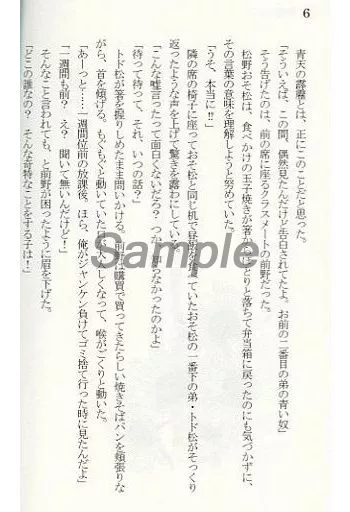 6
青天の霹靂とは、正にこのことだと思った。
「そういえば、この間、偶然見たんだけど告白されてたよ。お前の二番目の弟の青い奴」
そう告げたのは、前の席に座るクラスメートの前野だった。
松野おそ松は、食べかけの玉子焼きが箸からぽとりと落ちて弁当箱に戻ったのにも気づかずに、
その言葉の意味を理解しようと努めていた。
「うそ、本当に!!」
隣の席の椅子に座っておそ松と同じ机で昼飯を
ていたおそ松の一番下の弟・トド松がそっくり
返ったような声を上げて驚きを露わにしている。
「こんな嘘言ったって面白くないだろ？ つか、知らなかったのかよ」
「待って待って、それ、いつの話？」
トド松が箸を握りしめたまま問いかける。前野は購買で買ってきたらしい焼きそばパンを頬張りな
がら、首を傾げる。もぐもぐと動いていた
が大人しくなって、喉がごくりと動いた。
「あーっと……一週間位前の放課後。ほら、俺がジャンケン負けてゴミ捨て行った時に見たんだよ」
「一週間も前？ え？ 聞いて無いんだけど！」
そんなこと言われても、と前野が困ったように眉を下げた。
「どこの誰なの？ そんな奇特なことをする子は！」
Sample